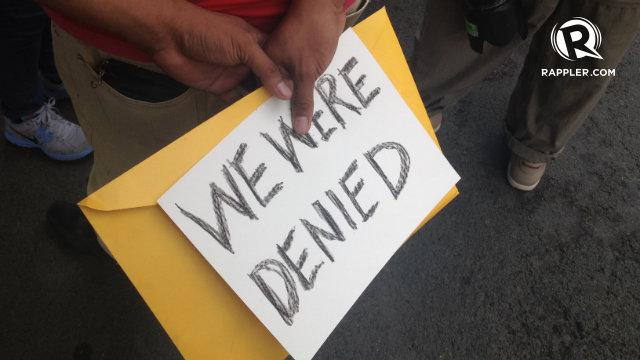 R
RAPPLER.COM
WE WERE
DENIED